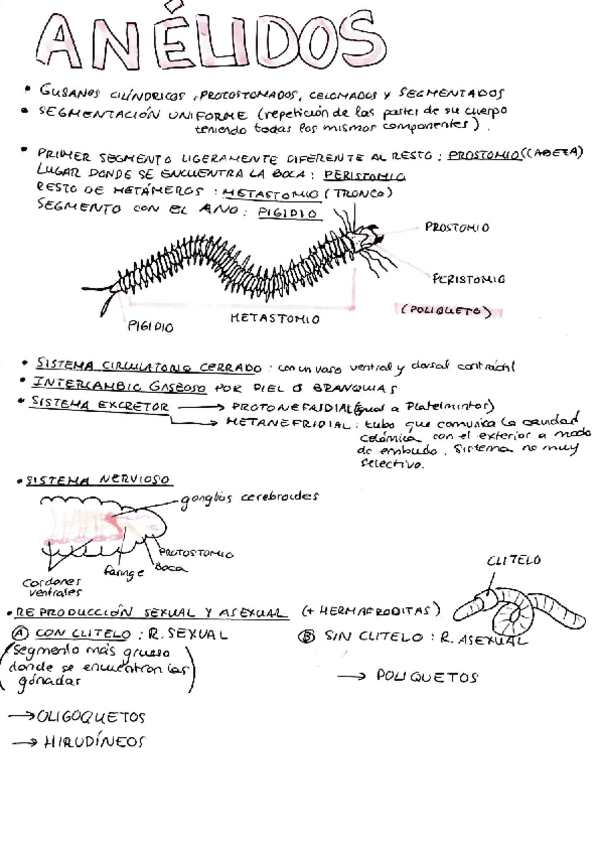 ANÉLIDOS
• GUSANOS CILÍNDRICOS, PROTOSTOMADOS, CELOMADOS Y SEGMENTADOS
• SEGMENTACIÓN UNIFORME (repetición de las partes de su cuerpo
teniendo todas los mismos componentes).
• PRIMER SEGMENTO LIGERAMENTE DIFERENTE AL RESTO: PROSTOMIO (CABEZA)
LUGAR DONDE SE ENCUENTRA LA BOCA: PERISTOMIO
RESTO DE METÁMEROS: METASTOMIO (TRONCO)
SEGMENTO CON EL ANO: PIGIDIO
PROSTOMIO
PERISTOMIO
(POLIQUETO)
METASTOMIO
PIGIDIO
• SISTEMA CIRCULATORIO CERRADO: con un vaso ventral y dorsal contráctil
• INTERCAMBIO GASEOSO POR PIEL O BRANQUIAS
• SISTEMA EXCRETOR → PROTONEFRIDIAL (igual a Platelmintos)
→ METANEFRIDIAL: tubo que comunica la cavidad
celómica con el exterior a modo
de embudo. Sistema no muy
selectivo.
• SISTEMA NERVIOSO
ganglios cerebroides
PROTOSTOMIO
Boca
faringe
Cordones
ventrales
CLITELO
• REPRODUCCIÓN SEXUAL Y ASEXUAL (+ HERMAFRODITAS)
A CON CLITELO: R. SEXUAL
(segmento más grueso
donde se encuentran las
gónadas)
→ OLIGOQUETOS
→ HIRUDÍNEOS
B SIN CLITELO: R. ASEXUAL
→ POLIQUETOS